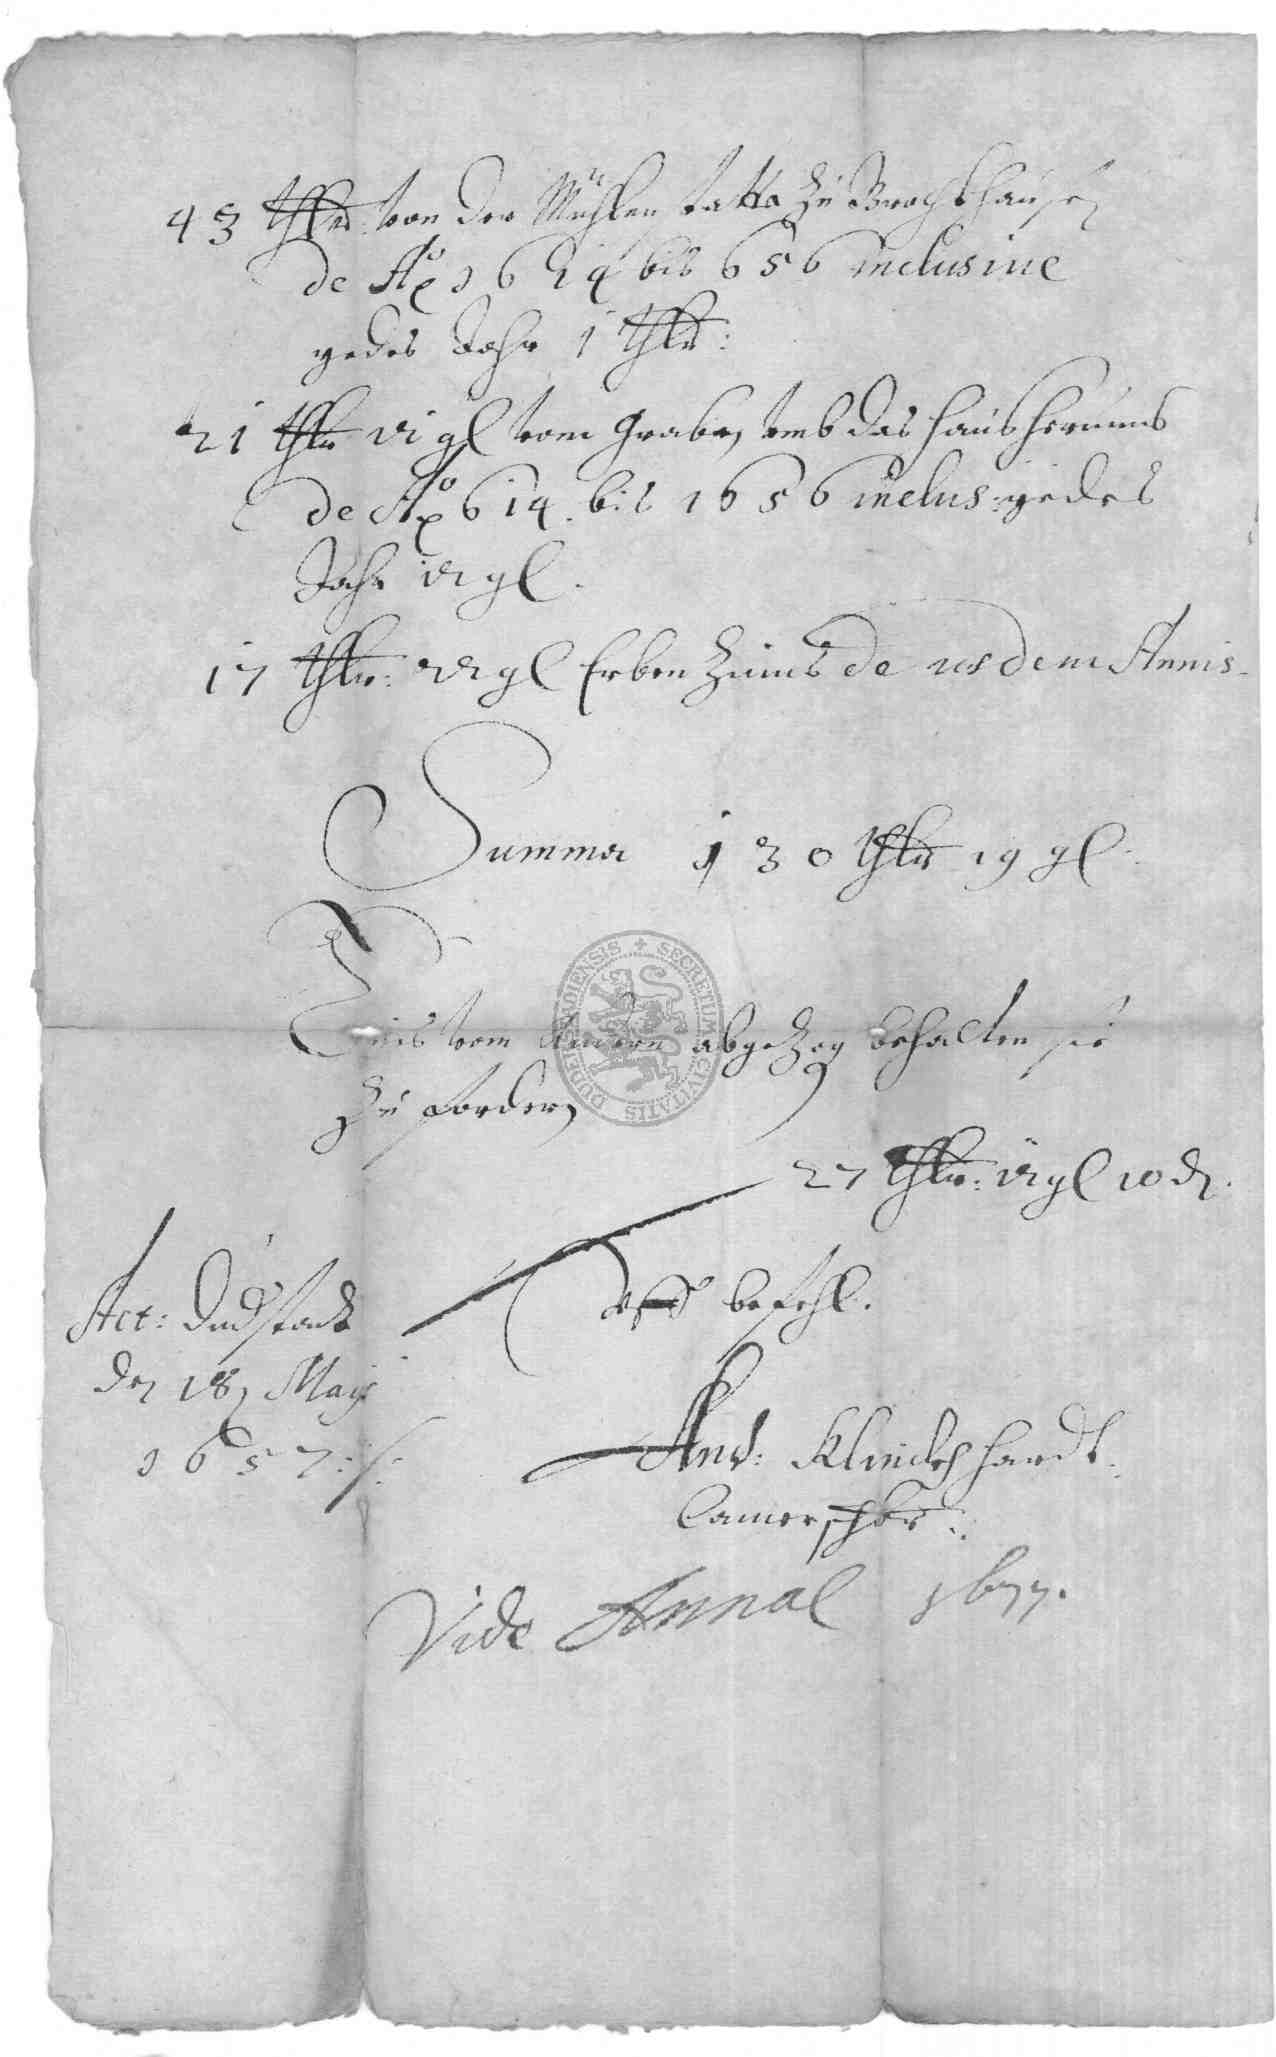 43 thlr: von der Mühlen statta zu Brochthausen
de Ao 1614 bis 656 inclusive
yedes Jahr 1 thlr:
21 thlr vi gl vom graben umb das haus herumb
de Ao 614. bis 1656 inclus: yedes
Jahr gl.
17 thlr: gl Erben Zinns de iisdem Annis.
Summa 130 thlr 19 gl.
Dis vom Andern abgezogen behalten sie
zu fordern
27 thlr: vi gl 10 d.
Act: Dudstadt
den 18 Maij
1657
befehl.
And: Klinckhardt
Camerschbr:
Vide Annal 1677.
SECRETUM CIVITATIS DUDERSTADIENSIS